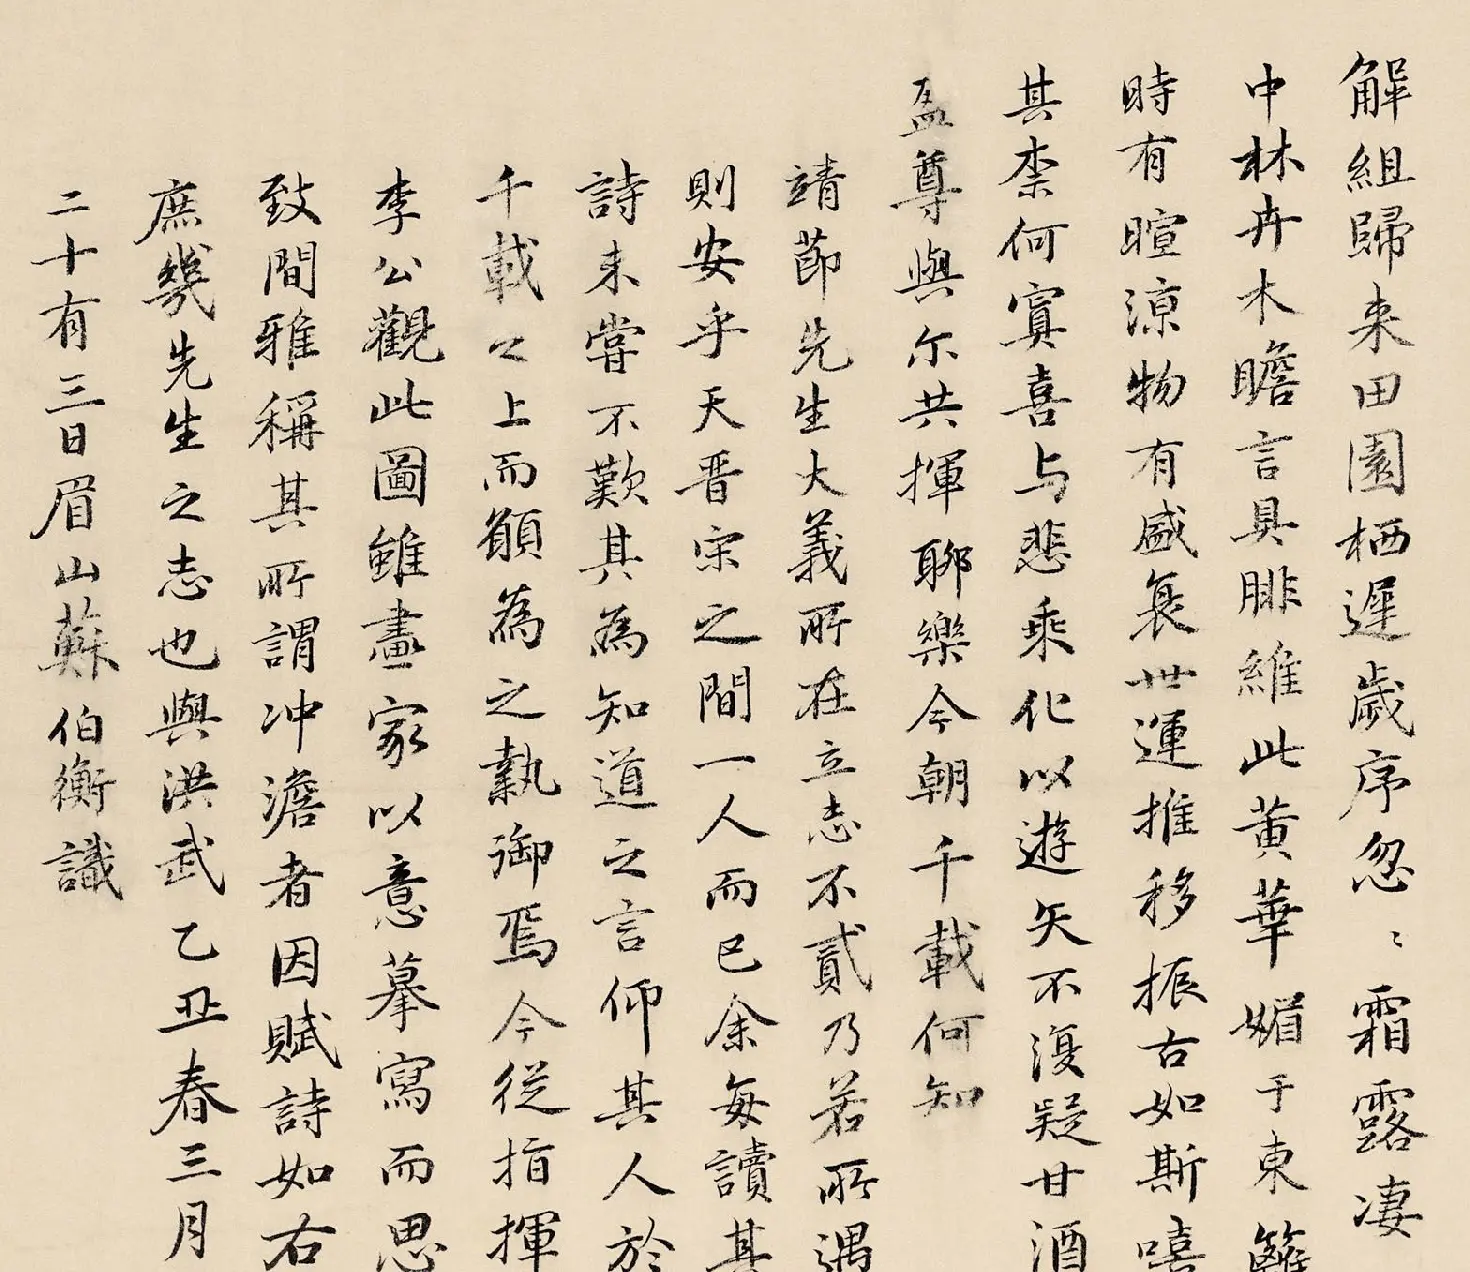 解組歸来田園栖遲歲序忽〻霜露凄
中林卉木瞻言具腓維此黄華媚于東籬
時有暄涼物有盛衰世運推移振古如斯嘻
其柰何寘喜与悲乘化以遊矢不復疑甘酒
盈尊與尔共揮聊樂今朝千載何知
靖莭先生大義所在立志不貳乃若所遇
則安乎天晋宋之間一人而已余每讀其
詩未甞不歎其為知道之言仰其人於
千載〻上而願為之執御焉今從指揮
李公觀此圖雖畫家以意摹寫而思
致間雅稱其所謂冲澹者因賦詩如右
庶幾先生之志也與洪武乙丑春三月
二十有三日眉山蘇伯衡識